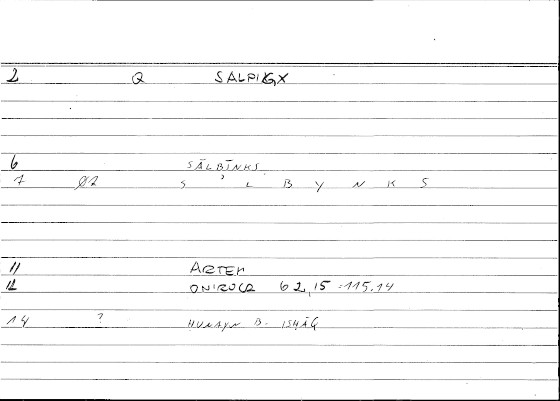 2 Q SALPIGX
6 SĀLBĪNKS
7 02 S ' L B Y N K S
11 ARTEM
12 ONIROCR 62,15 = 115.14
14 ? HUNAYN B. ISHĀQ